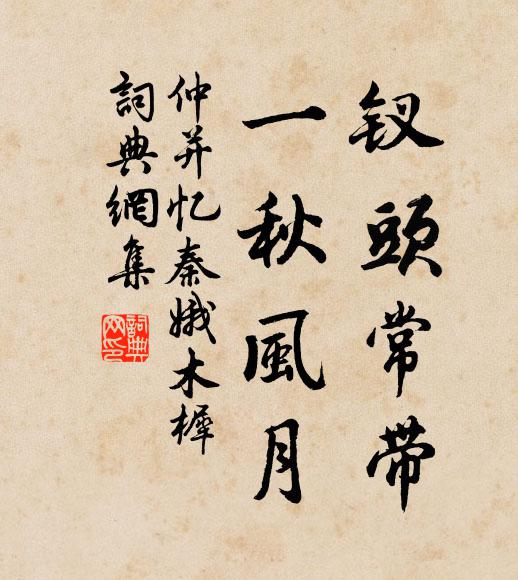 钗頭常带
一秋風月
仲并忆秦娥木樨
詞典網集
詞典网印